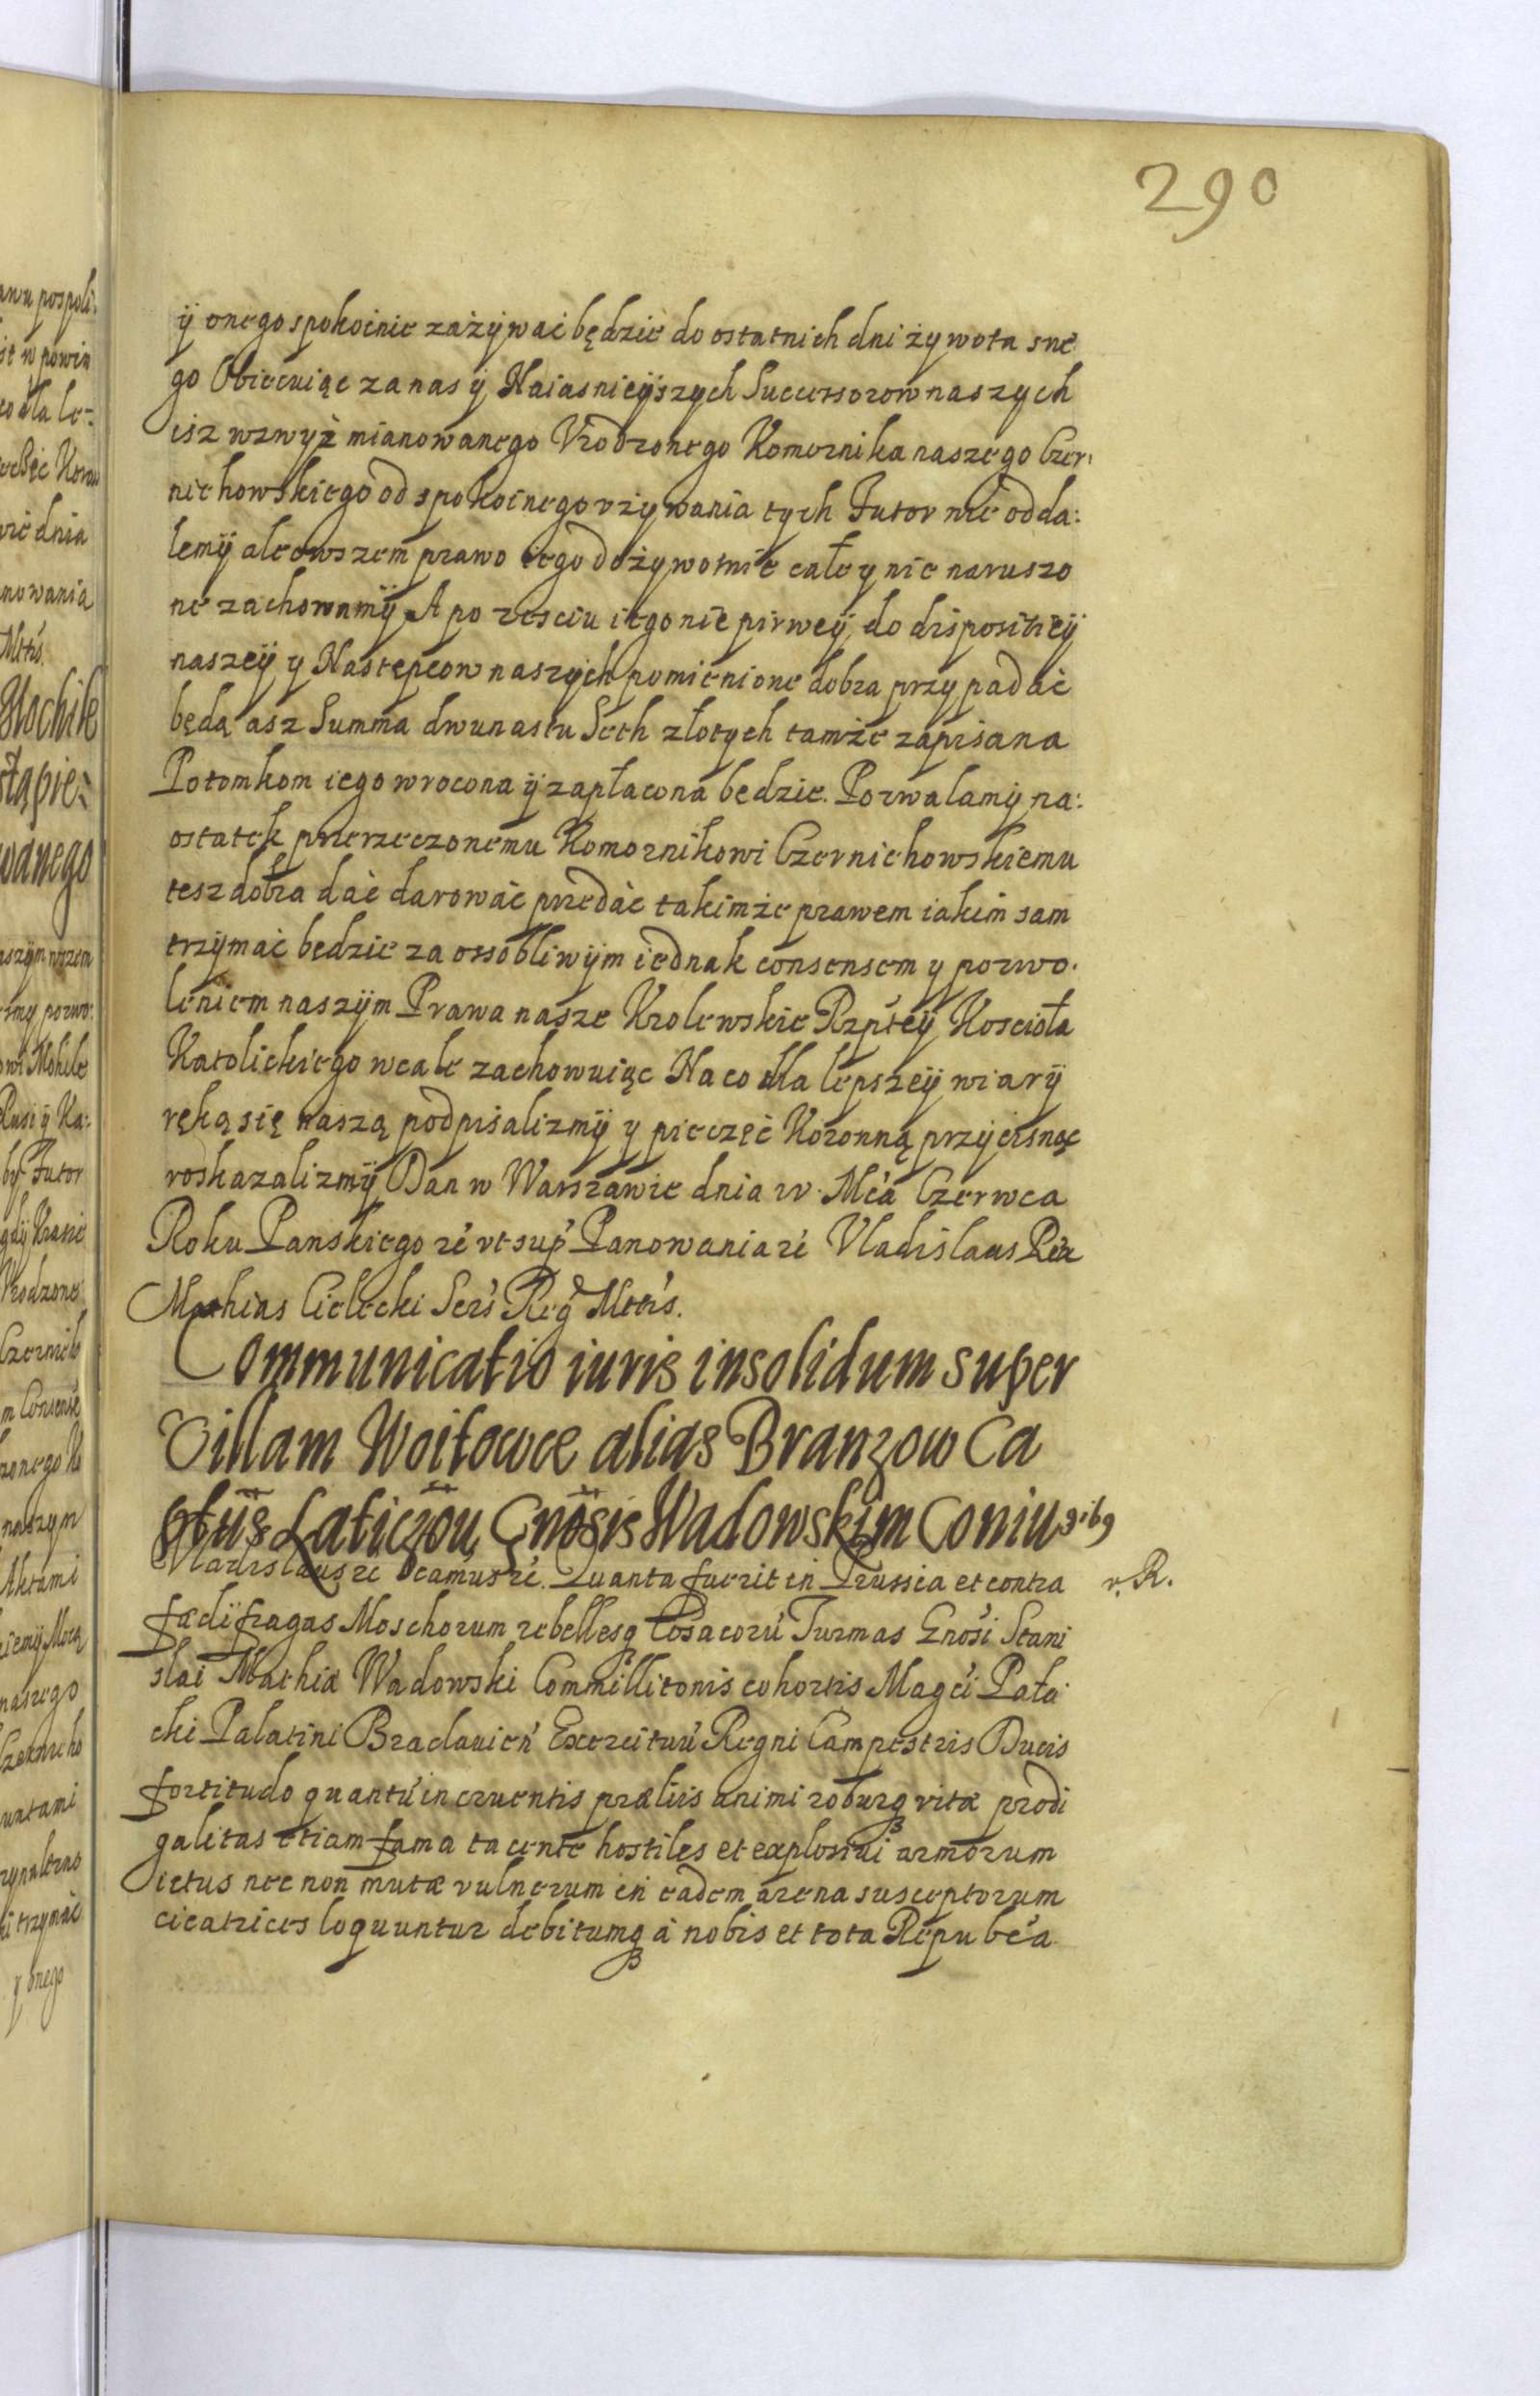 290
ÿ onego spokoinie zażÿwać będzie do ostatnich dni żywota swe
go Obiecuiąc za nas ÿ Naiasnieÿszych Successorow naszych
isz wzwyż mianowanego Vrodzonego Komornika naszego Czer:
niechowskiego od spokoinego vżywania tych Futor nie odda:
lemÿ ale owszem prawo iego dożywotnie całe y nie naruszo
ne zachowamÿ A po zesciu iego nie pirweÿ do disposiciÿ
naszeÿ y Nastepcow naszych pomienione dobra przypadać
będą asz Summa dwunastu Seth złotych tamże zapisana
Potomkom iego wrocona ÿ zapłacona bedzie. Pozwalamÿ na:
ostatek przerzeczonemu Komornikowi Czernichowskiemu
tesz dobra dać darować przedać takimże prawem iakim sam
trzÿmać bedzie za ossobliwÿm iednak consensem y pozwo.
leniem naszÿm Prawa nasze Krolewskie Rzptéÿ Koscioła
Katolickiego wcale zachowuiąc Na co dla lepszeÿ wiarÿ
ręką się naszą podpisalizmÿ y pieczęć Koronną przÿcisnąc
roskazalizmÿ Dan w Warszawie dnia IV. Mca Czerwca
Roku Panskiego zc vt sup Panowania zc Vladislaus Rex
Mathias Cielecki Secs Reg Mttis.
Communicatio iuris insolidum super
Villam Woitowce alias Branzow Ca
ptus Laticzou Gnosis Wadowskim Coniugibq
Vladislaus zc ... zc. Quanta fuerit in Prussia et contra
r. R.
fædifragas Moschorum rebellesq Cosacorū Turmas Gnosi Stani
slai Mathiæ Wadowski Commillitonis cohortis Magci Potoi
cki Palatini Braclauien Exercituū Regni Campestris Ducis
fortitudo quantū in cruentis præliis animi roburq vitæ prodi
galitas etiam fama tacente hostiles et explosiui armorum
ictus nec non mutæ vulnerum in eadem arena susceptorum
cicatrices loquuntur debitumq à nobis et tota Republca